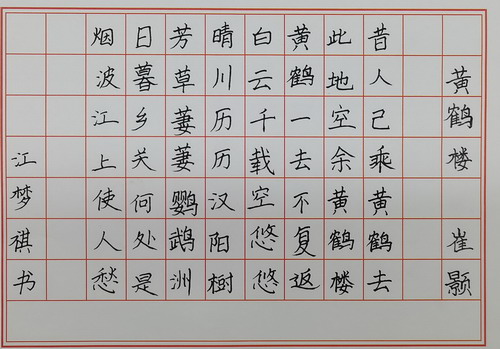 黄鹤楼 崔颢
昔人己乘黄鹤去
此地空余黄鹤楼
黄鹤一去不复返
白云千载空悠悠
晴川历历汉阳树
芳草萋萋鹦鹉洲
日暮乡关何处是
烟波江上使人愁
江梦祺书